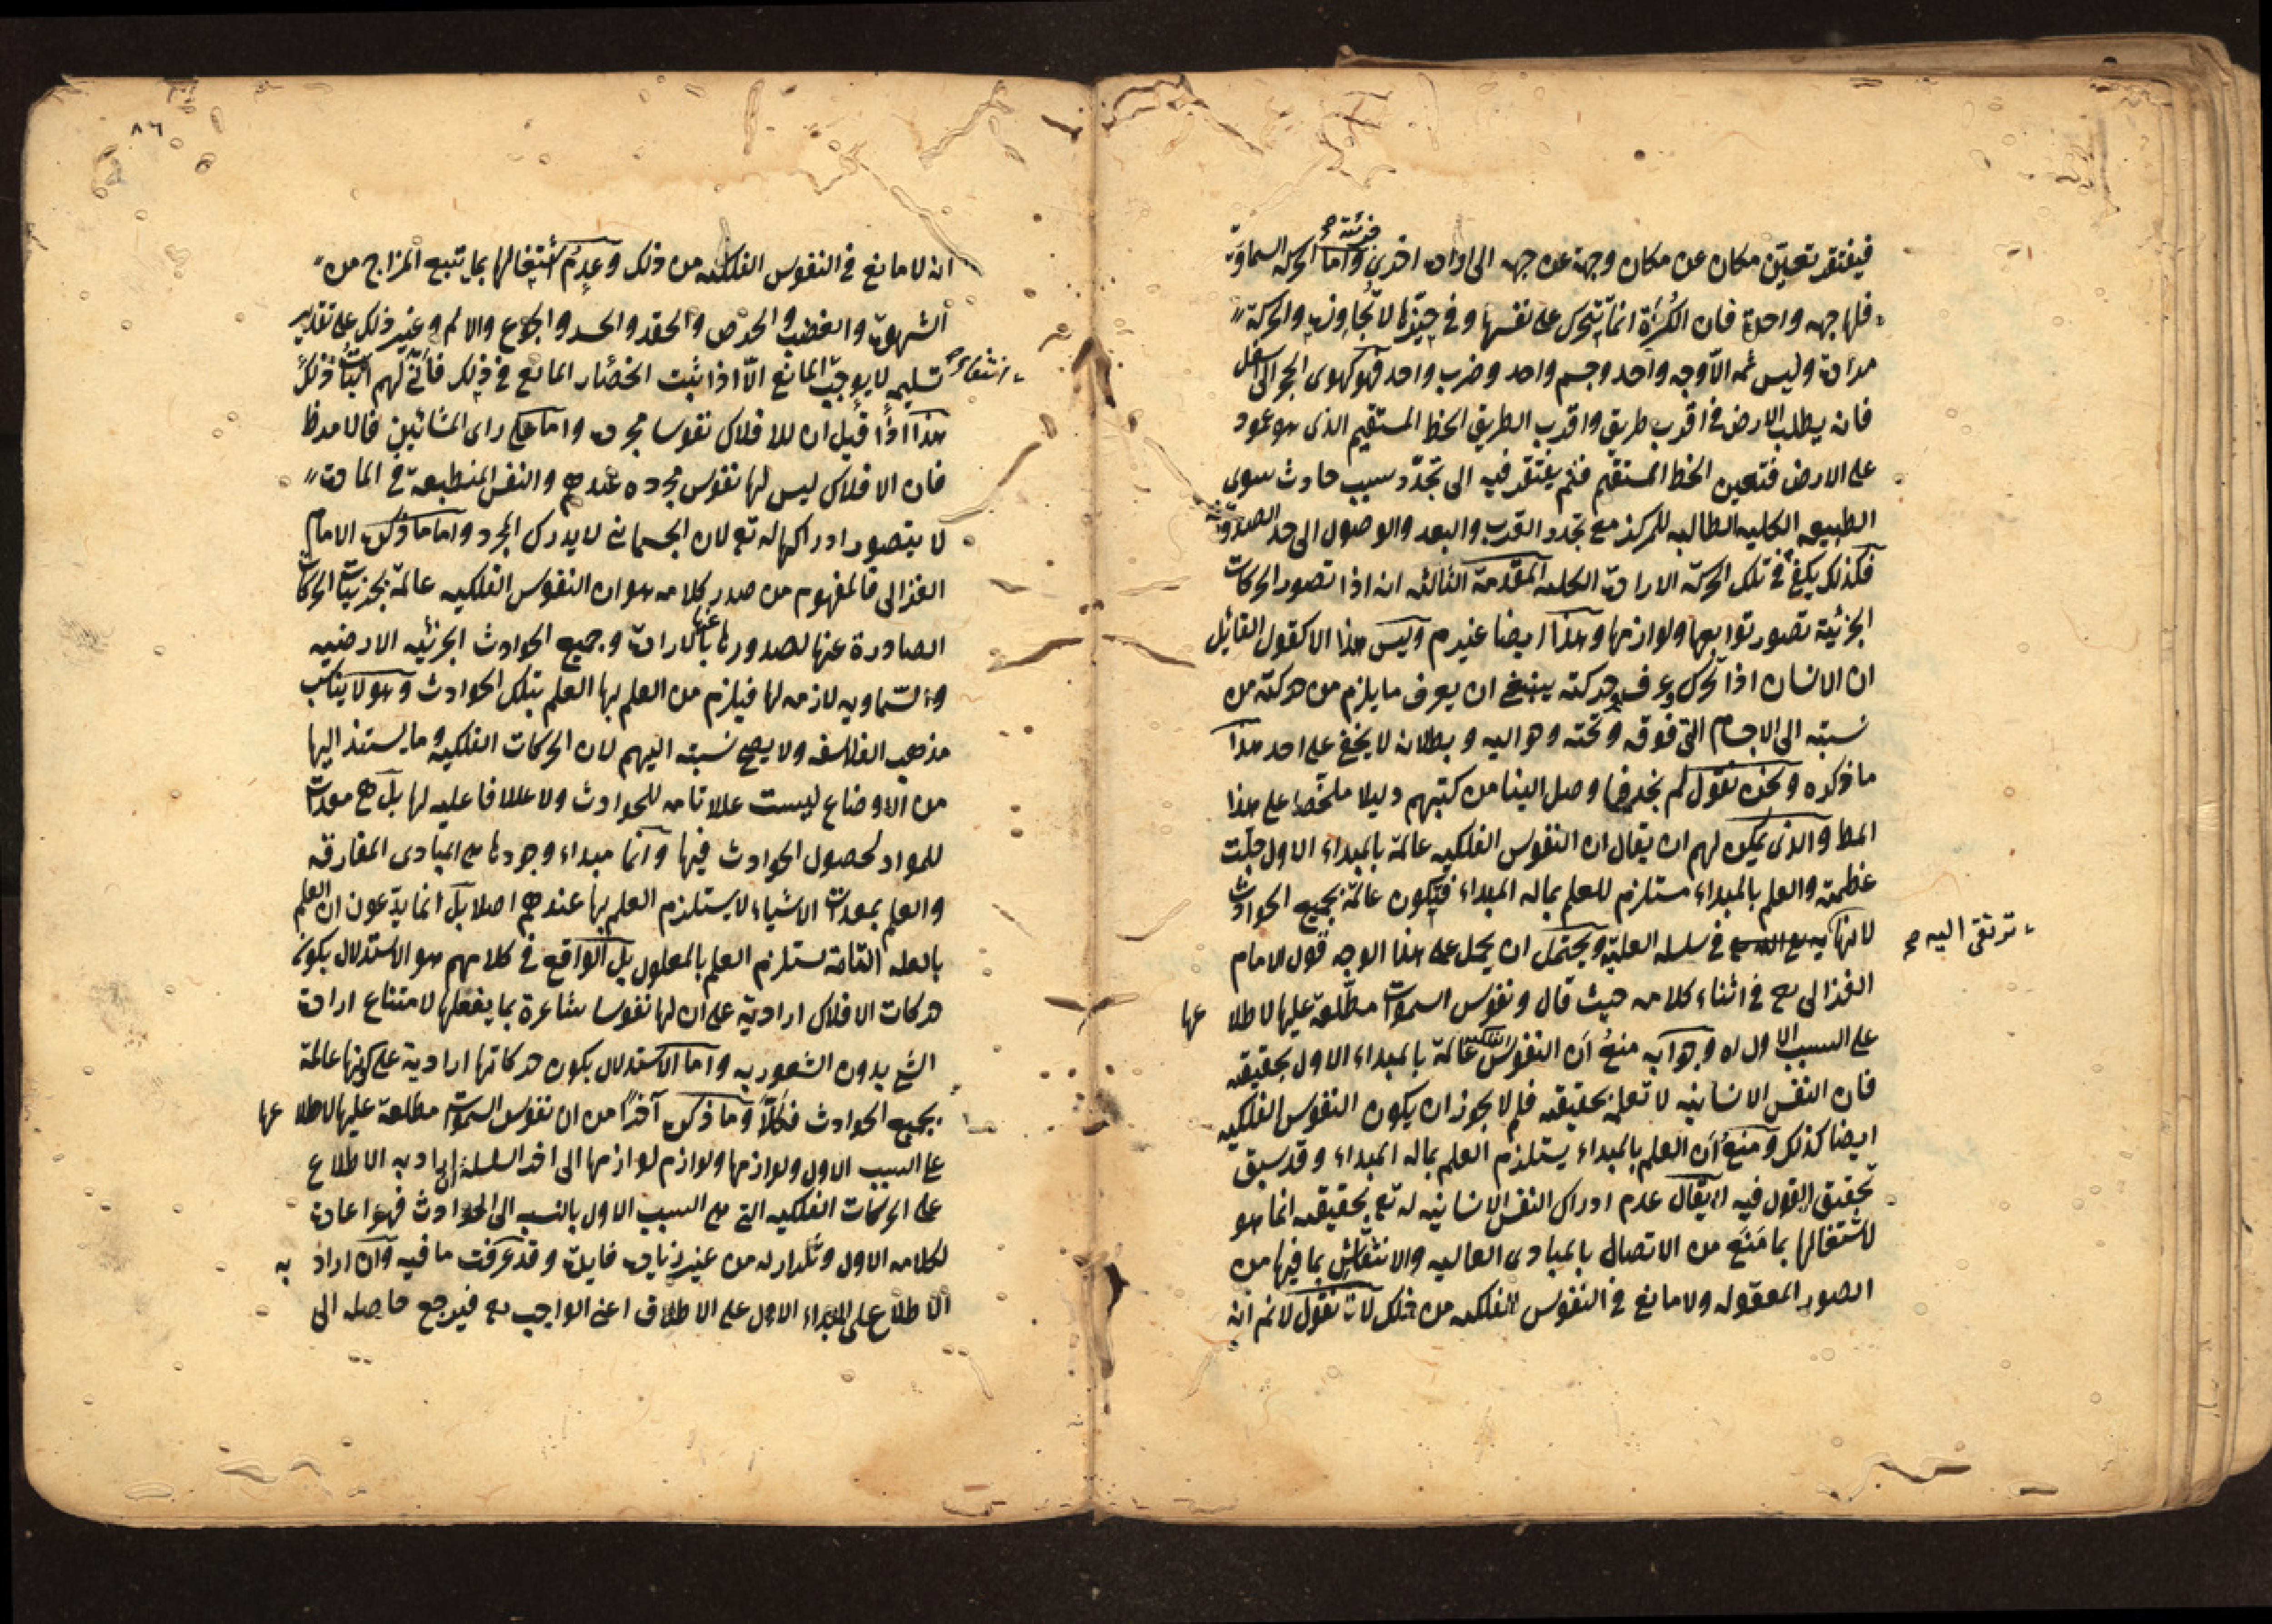 فيفتقر تعين مكان عن مكان وجهة عن جهه الى ارادة اخرى جزئية صح واما الحركة السماوية
فلها جهه واحدة فان الكرة انما تتحرك على نفسها وفي حيزها لا تجاوزه والحركة
مرادة وليس ثمه الا وجه واحد وجسم واحد وضرب واحد فهو كهوى الحجر الى اسفل
فانه يطلب الارض في اقرب طريق واقرب الطريق الخط المستقيم الذى هو عمود
على الارض فتعين الخط المستقيم فلم يفتقر فيه الى تجدد سبب حادث سوى
الطبيعه الكليه الطالبه للمركز مع تجدد القرب والبعد والوصول الى حد والصدور عنه
فكذلك يكفى في تلك الحركة الارادة الكليه المقدمة الثالثه انه اذا تصور الحركات
الجزئية تصور توابعها ولوازمها وهذا ايضا غير م وليس هذا الا كقول القائل
ان الانسان اذا تحرك وعرف حركته ينبغى ان يعرف ما يلزم من حركته من
نسبته الى الاجسام التى فوقه وتحته وحواليه وبطلانه لا يخفى على احد هذا
ما ذكره ونحن نقول لم نجد فيما وصل الينا من كتبهم دليلا ملخصا على هذا
المط والذى يمكن لهم ان يقال ان النفوس الفلكيه عالمة بالمبداء الاول جلت
عظمته والعلم بالمبداء مستلزم للعلم بما له المبداء فيكون عالمة بجميع الحوادث
لانها به في سلسله العلية ويحتمل ان يحمل على هذا الوجه قول الامام
ترتقى اليه صح
الغزالى في اثناء كلامه حيث قال ونفوس السموات مطلعة عليها لاطلاعها
على السبب الاول له وجوابه منع ان النفوس الفلكيه عالمة بالمبداء الاول بحقيقته
فان النفس الانسانيه لا تعلمه بحقيقته فلم لا يجوز ان يكون النفوس الفلكيه
ايضا كذلك ومنع ان العلم بالمبداء يستلزم العلم بما له المبداء وقد سبق
تحقيق القول فيه لا يقال عدم ادراك النفس الانسانيه له تع بحقيقته انما هو
لاشتغالها بما منع من الاتصال بالمبادى العاليه والانتقاش بما فيها من
الصور المعقوله ولا مانع في النفوس الفلكيه من ذلك لانا نقول لا نم انه
٨٦
انه لا مانع في النفوس الفلكيه من ذلك وعدم اشتغالها بما يتبع المزاج من
الشهوة والغضب والحرص والحقد والحسد والجوع والالم وغير ذلك على تقدير
تسليمه لا يوجب المانع الا اذا ثبت انحصار المانع في ذلك فانى لهم اثبات ذلك
انتفاء صح
هذا اذا قيل ان للافلاك نفوسا مجردة واما على راى المشائين فالامر ظ
فان الافلاك ليس لها نفوس مجرده عندهم والنفس المنطبعة في المادة
لا يتصور ادراكها له تع لان الجسمانى لا يدرك المجرد واما ما ذكره الامام
الغزالى فالمفهوم من صدر كلامه هو ان النفوس الفلكيه عالمة بجزئيات الحركات
الصادرة عنها لصدورها عنها بالارادة وجميع الحوادث الجزئيه الارضيه
والسماويه لازمه لها فيلزم من العلم بها العلم بتلك الحوادث وهو لا يناسب
مذهب الفلاسفه ولا يصح نسبته اليهم لان الحركات الفلكيه وما يستند اليها
من الاوضاع ليست عللا تامه للحوادث ولا عللا فاعليه لها بل هى معدات
للمواد لحصول الحوادث فيها وانما مبداء وجودها هى المبادى المفارقه
والعلم بمعدات الاشياء لا يستلزم العلم بها عندهم اصلا بل انما يدعون ان العلم
بالعله التامة يستلزم العلم بالمعلول بل الواقع في كلامهم هو الاستدلال بكون
حركات الافلاك ارادية على ان لها نفوسا شاعرة بما يفعلها لامتناع ارادة
الشئ بدون الشعور به واما الاستدلال بكون حركاتها ارادية على كونها عالمة
بجميع الحوادث فكلا وما ذكره آخرا من ان نفوس السموات مطلعة عليها لاطلاعها
على السبب الاول ولوازمها ولوازم لوازمها الى اخر السلسلة ان اراد به الاطلاع
على الحركات الفلكيه التى هى السبب الاول بالنسبه الى الحوادث فهو اعادة
لكلامه الاول وتكرار له من غير زيادة فايدة وقد عرفت ما فيه وان اراد به
الاطلاع على المبداء الاول على الاطلاق اعنى الواجب تع فيرجع حاصله الى